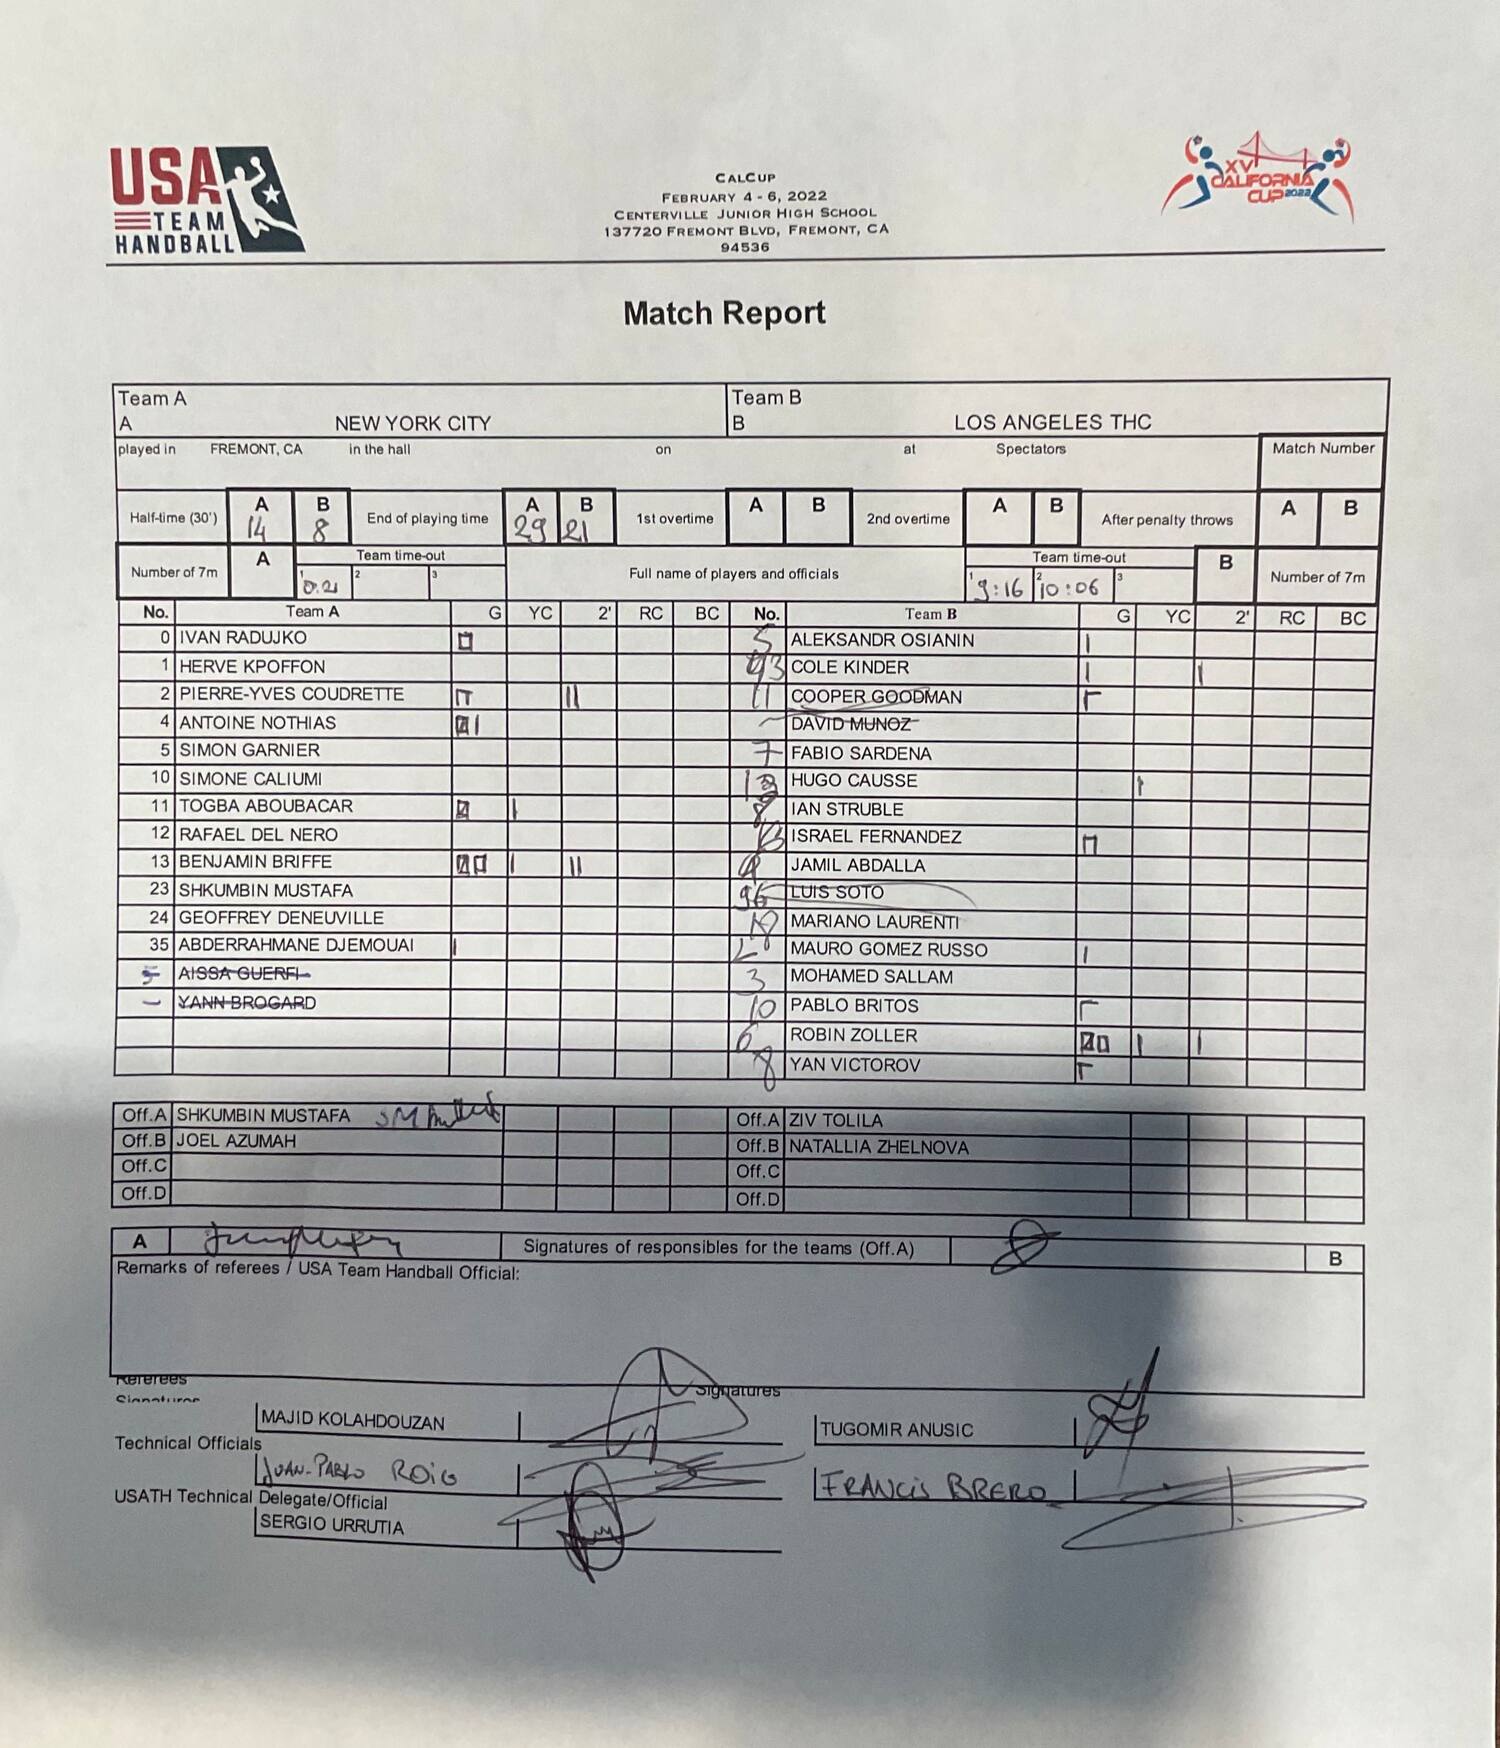 USA
TEAM
HANDBALL
CALCUP
FEBRUARY 4 - 6, 2022
CENTERVILLE JUNIOR HIGH SCHOOL
137720 FREMONT BLVD, FREMONT, CA
94536
XV
CALIFORNIA
CUP 2022
Match Report
Team A Team B
A NEW YORK CITY B LOS ANGELES THC
played in FREMONT, CA in the hall on at Spectators Match Number
Half-time (30') A 14 B 8 End of playing time A 29 B 21 1st overtime A B 2nd overtime A B After penalty throws A B
Number of 7m A Team time-out 1 2 3 Full name of players and officials Team time-out 1 9:16 2 10:06 3 B Number of 7m
No. Team A G YC 2' RC BC No. Team B G YC 2' RC BC
0 IVAN RADUJKO 5 ALEKSANDR OSIANIN
1 HERVE KPOFFON COLE KINDER
2 PIERRE-YVES COUDRETTE 11 COOPER GOODMAN
4 ANTOINE NOTHIAS DAVID MUNOZ
5 SIMON GARNIER 7 FABIO SARDENA
10 SIMONE CALIUMI HUGO CAUSSE
11 TOGBA ABOUBACAR IAN STRUBLE
12 RAFAEL DEL NERO ISRAEL FERNANDEZ
13 BENJAMIN BRIFFE JAMIL ABDALLA
23 SHKUMBIN MUSTAFA 96 LUIS SOTO
24 GEOFFREY DENEUVILLE MARIANO LAURENTI
35 ABDERRAHMANE DJEMOUAI MAURO GOMEZ RUSSO
AISSA GUERFI 3 MOHAMED SALLAM
YANN BROGARD 10 PABLO BRITOS
6 ROBIN ZOLLER
8 YAN VICTOROV
Off.A SHKUMBIN MUSTAFA Off.A ZIV TOLILA
Off.B JOEL AZUMAH Off.B NATALLIA ZHELNOVA
Off.C Off.C
Off.D Off.D
A Signatures of responsibles for the teams (Off.A) B
Remarks of referees / USA Team Handball Official:
Referees
Signatures Signatures
MAJID KOLAHDOUZAN TUGOMIR ANUSIC
Technical Officials
JUAN-PABLO ROIG FRANCIS BRERO
USATH Technical Delegate/Official
SERGIO URRUTIA